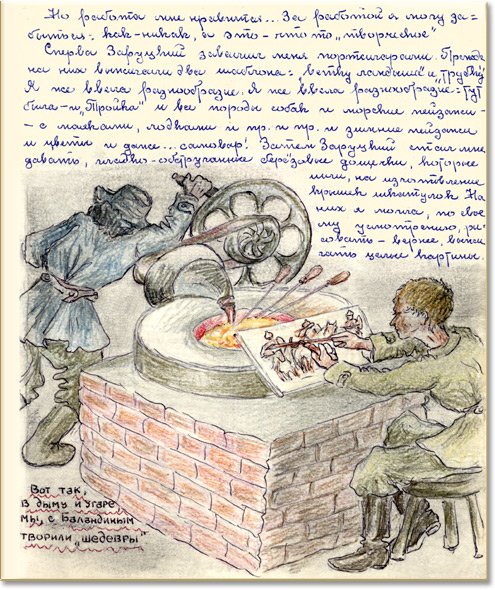 Но работа мне нравится... За работой я могу за-
быться: как-никак, а это-что то „творческое"
Сперва Заруцкий завалил меня портсигарами. Прежде
на них выжигали два шаблона: ветку ландыша и „Трубку".
Я же ввела разнообразие. Я же ввела разнообразие: тут
была-и „Тройка" и все породы собак и морские пейзажи-
- с маяками, лодками и пр. и пр. и зимние пейзажи
и цветы и даже... самовар! Затем Заруцкий стал мне
давать, гладко-обструганные берёзовые дощечки, которые
шли, на изготовление
крышек шкатулок На
них я могла, по свое
му усмотрению, ри
совать - вернее, выжи
гать целые картины.
Вот так,
в дыму и угаре
мы, с Баландиным
творили „шедевры"